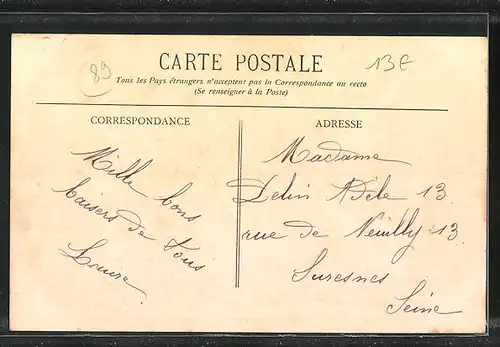 89
CARTE POSTALE
13E
Tous les Pays étrangers n'acceptent pas la Correspondance au recto
(Se renseigner à la Poste)
CORRESPONDANCE
Mille bons
baisers de tous
Louise
ADRESSE
Madame
Delin Adèle 13
rue de Neuilly 13
Suresnes
Seine